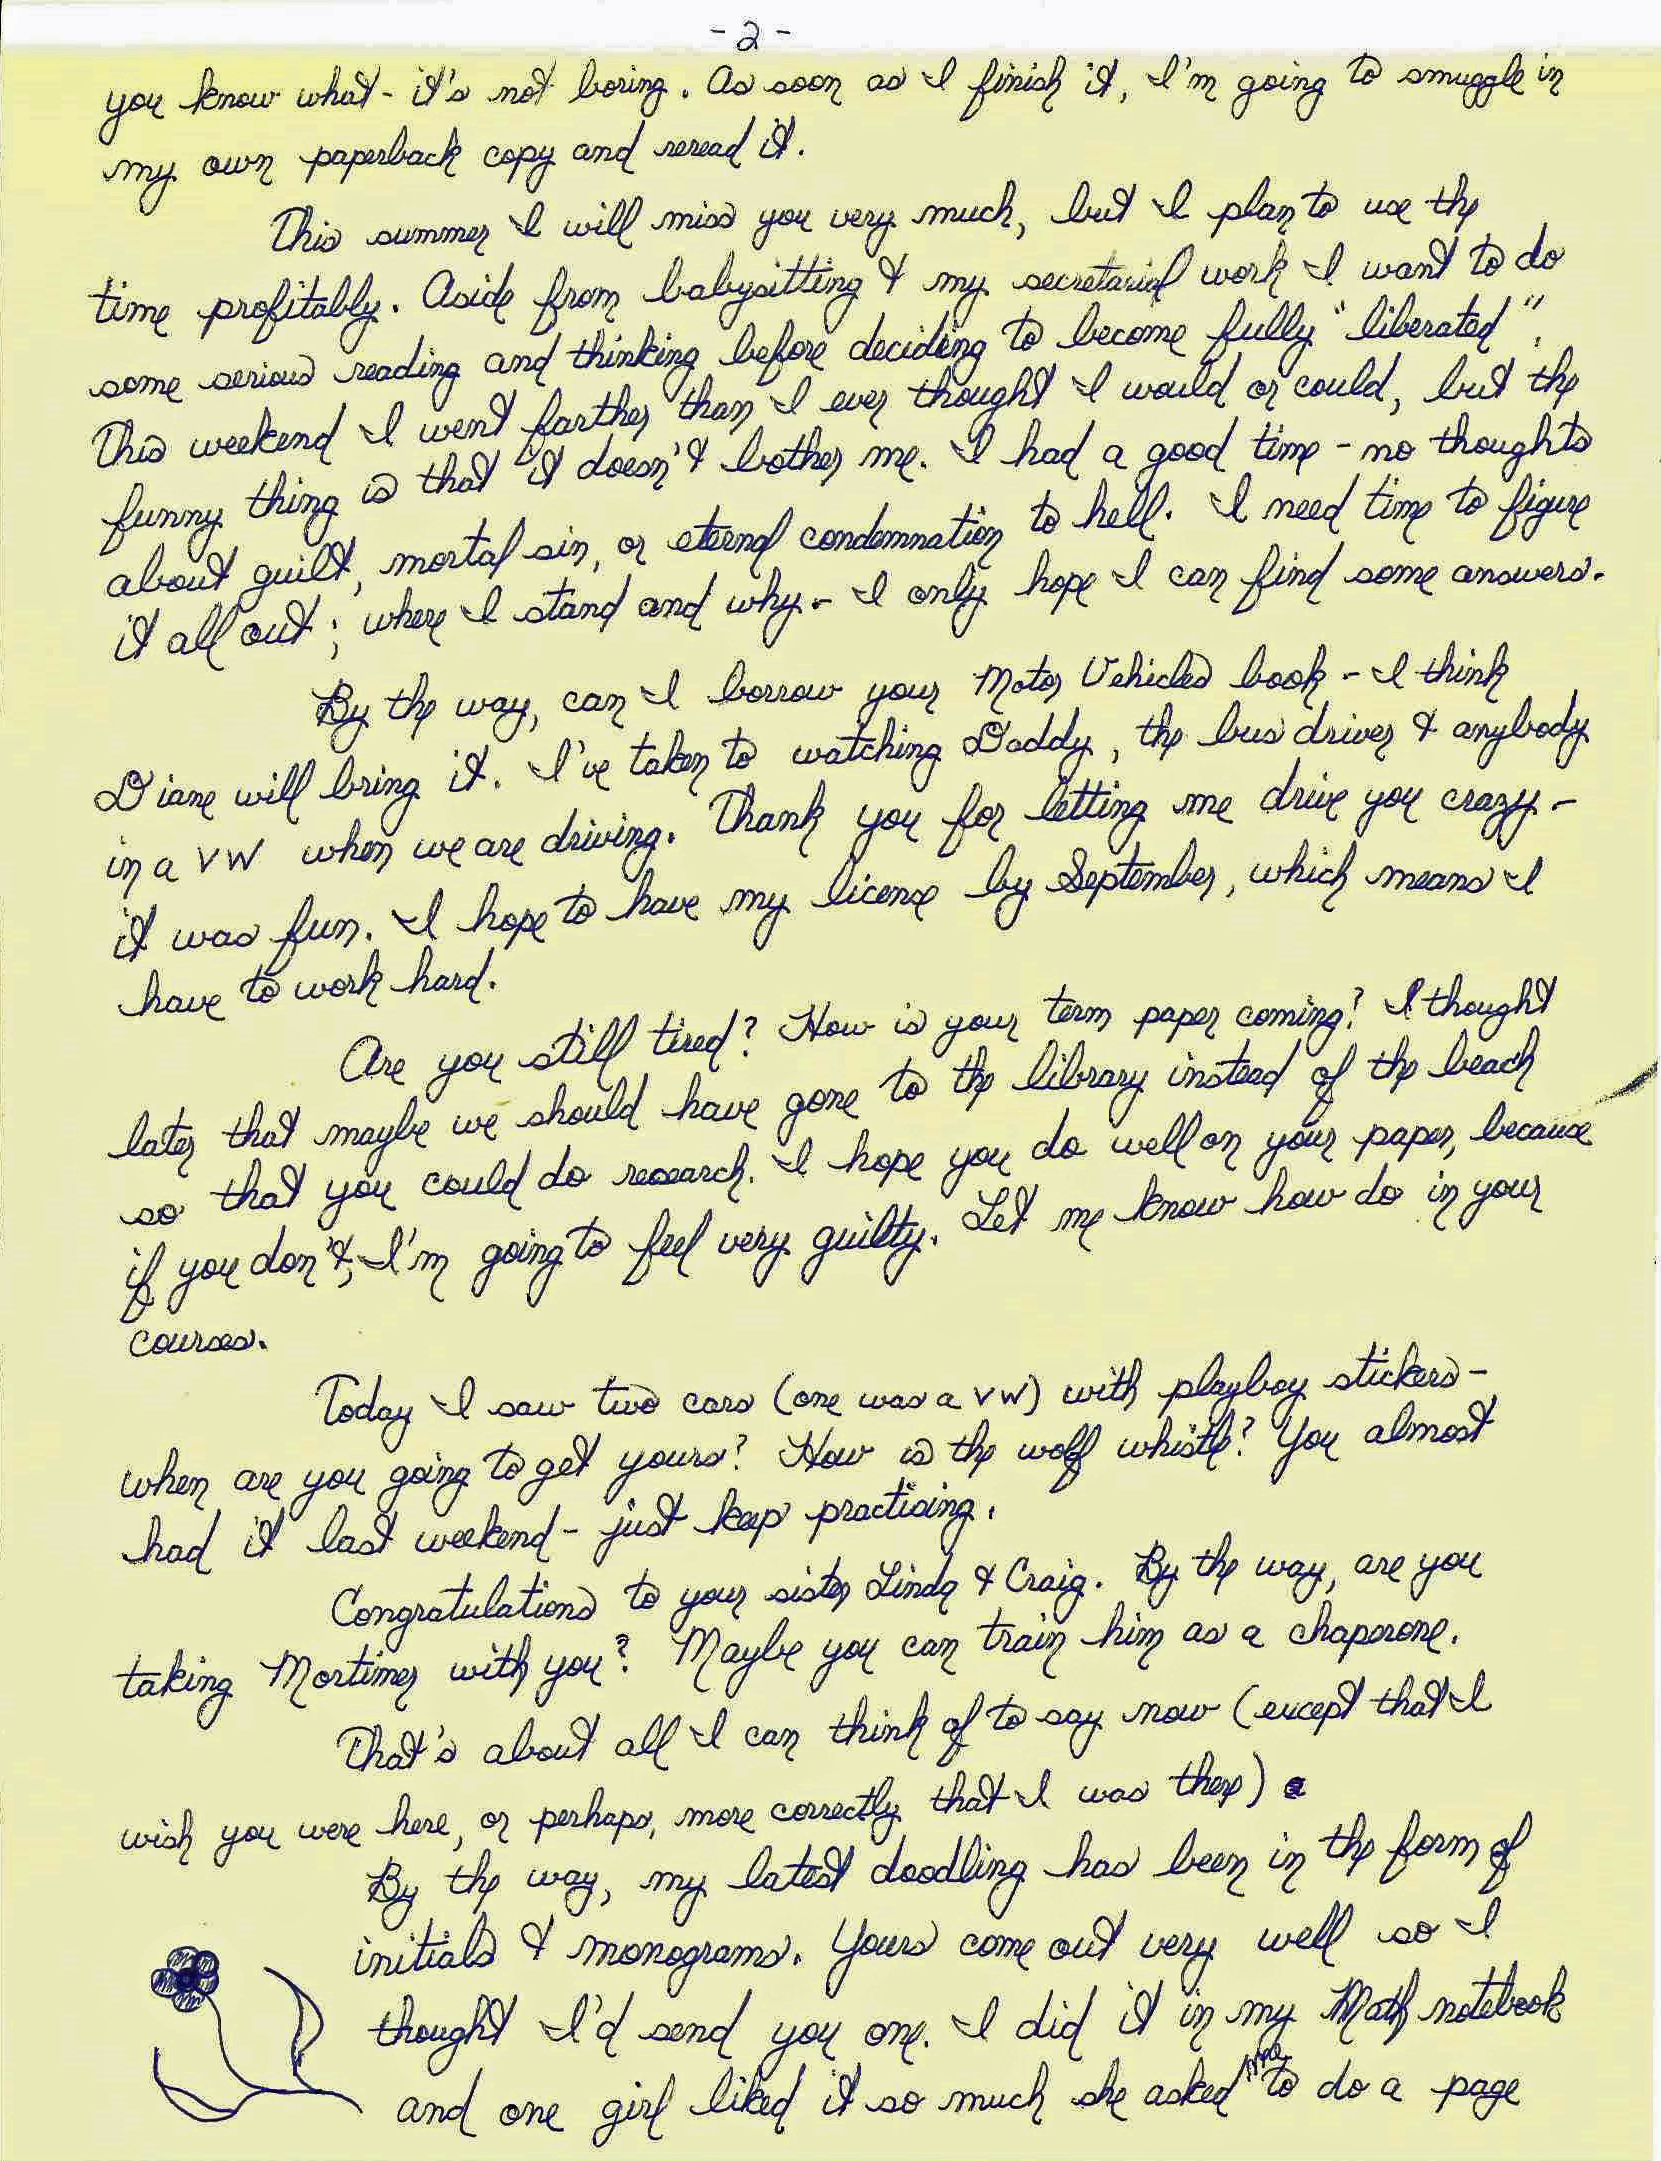 - 2 -
you know what - it's not boring. As soon as I finish it, I'm going to smuggle in
my own paperback copy and reread it.
This summer I will miss you very much, but I plan to use the
time profitably. Aside from babysitting & my secretarial work I want to do
some serious reading and thinking before deciding to become fully "liberated".
This weekend I went farther than I ever thought I would or could, but the
funny thing is that it doesn't bother me. I had a good time - no thoughts
about guilt, mortal sin, or eternal condemnation to hell. I need time to figure
it all out; where I stand and why - I only hope I can find some answers.
By the way, can I borrow your Motor Vehicles book - I think
Diane will bring it. I've taken to watching Daddy, the bus driver & anybody
in a VW when we are driving. Thank you for letting me drive you crazy -
it was fun. I hope to have my license by September, which means I
have to work hard.
Are you still tired? How is your term paper coming? I thought
later that maybe we should have gone to the library instead of the beach
so that you could do research. I hope you do well on your paper, because
if you don't, I'm going to feel very guilty. Let me know how do in your
courses.
Today I saw two cars (one was a VW) with playboy stickers -
when are you going to get yours? How is the wolf whistle? You almost
had it last weekend - just keep practising.
Congratulations to your sister Linda & Craig. By the way, are you
taking Mortimer with you? Maybe you can train him as a chaperone.
That's about all I can think of to say now (except that I
wish you were here, or perhaps, more correctly that I was there).
By the way, my latest doodling has been in the form of
initials & monograms. Yours come out very well so I
thought I'd send you one. I did it in my Math notebook
and one girl liked it so much she asked me to do a page